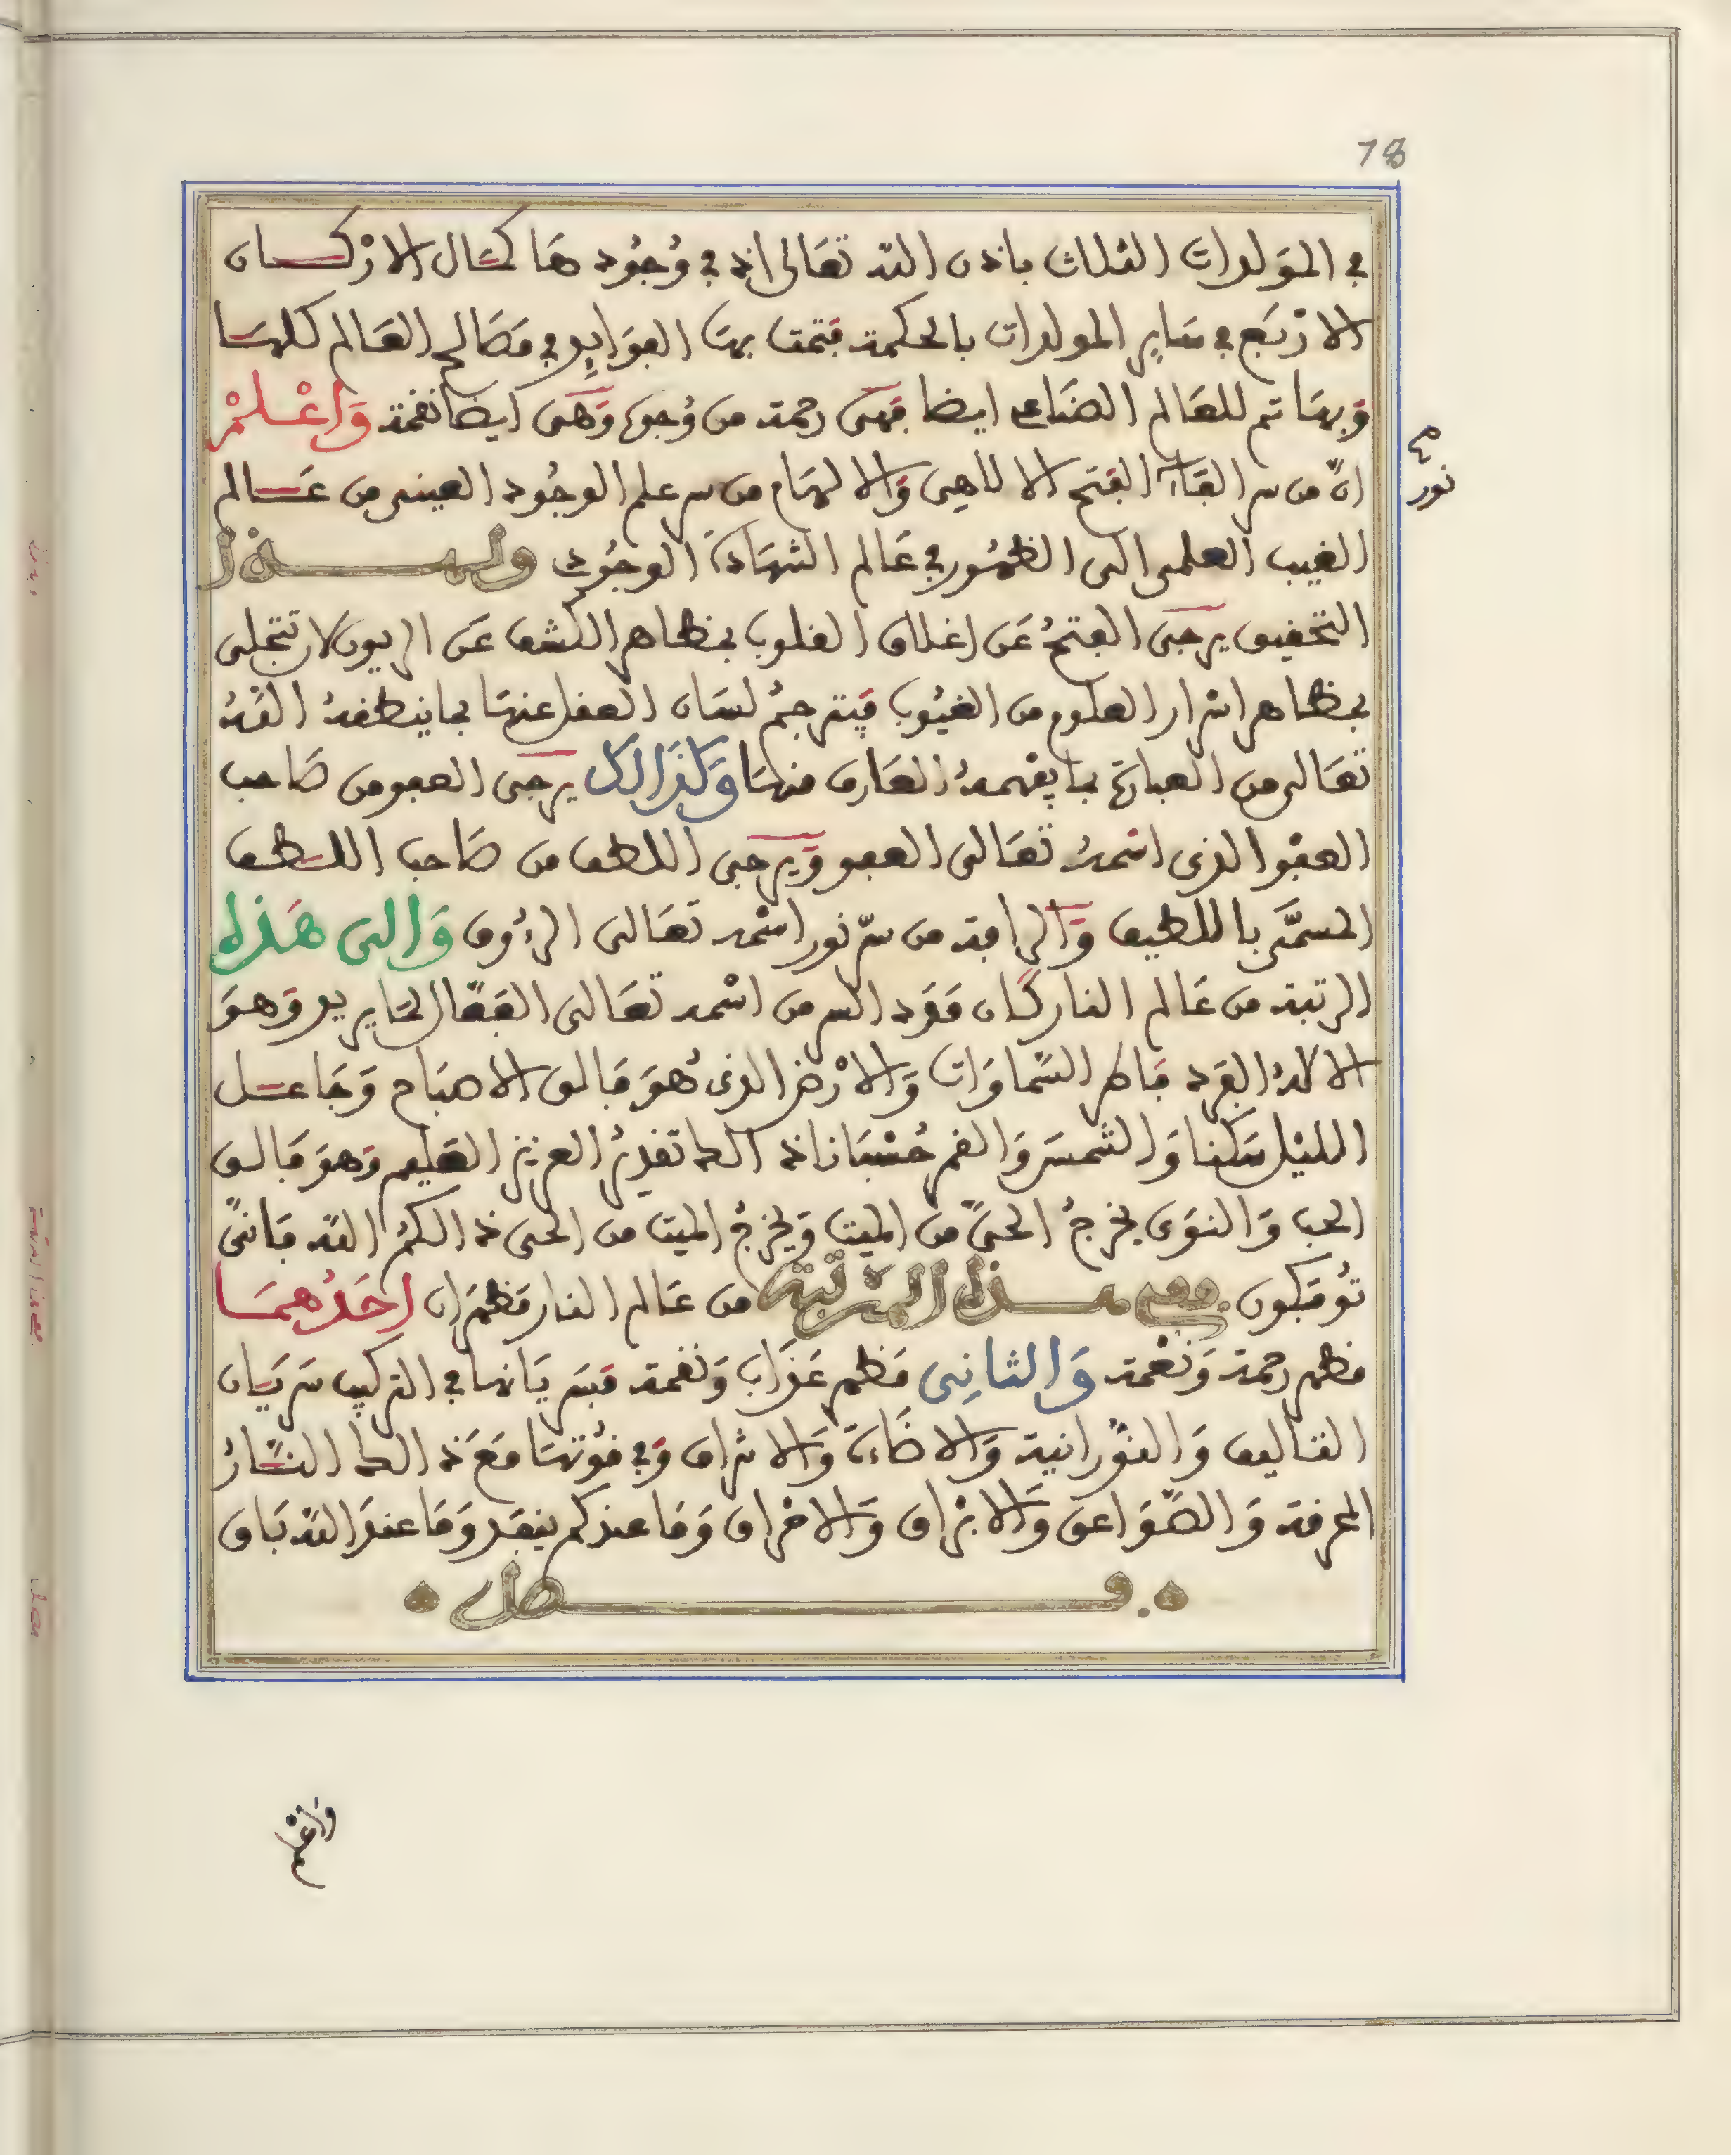 78
في المولدات الثلاث باذن الله تعالى اذ في وجودها كمال الاركان
الاربع في ساير المولدات بالحكمة فتمت بها الفوايد في مصالح العالم كلها
وبها تم للعالم الصناعي ايضا فهى رحمة من وجه وهى ايضا نقمة واعلم
ان من سر القاء الفتح الالاهي والالهام من سر علم الوجود العيني من عالم
الغيب العلمي الى الظهور في عالم الشهادة الوجودي ولهذا
التحقيق يرجى الفتح عن اغلاق القلوب بمظاهر الكشف عن الريون لان تتجلى
بمظاهر اسرار العلوم من الغيوب فيترجم لسان العقل عنها بما ينطقه الله
تعالى من العبارة بما يفهمه العارف منها وكذالك يرجى العفو من صاحب
العفو الذى اسمه تعالى العفو ويرجى اللطف من صاحب اللطف
المسمى باللطيف والرافة من سر نور اسمه تعالى الرؤوف والى هذه
الرتبة من عالم النار كان مدد السر من اسمه تعالى الفعال لما يريد وهو
الالاه الفرد فاطر السماوات والارض الذى هو فالق الاصباح وجاعل
الليل سكنا والشمس والقمر حسبانا ذالك تقدير العزيز العليم وهو فالق
الحب والنوى يخرج الحي من الميت ويخرج الميت من الحى ذالكم الله فانى
توفكون ففي هذه المرتبة من عالم النار مظهران احدهما
مظهر رحمة ونعمة والثاني مظهر عذاب ونقمة فسريانها في التركيب سريان
التاليف والنورانية والاضاءة والاشراق وفي قوتها مع ذالك النار
المحرقة والصواعق والابراق والاحراق وما عندكم ينفد وما عند الله باق
فصل
نور
واعلم